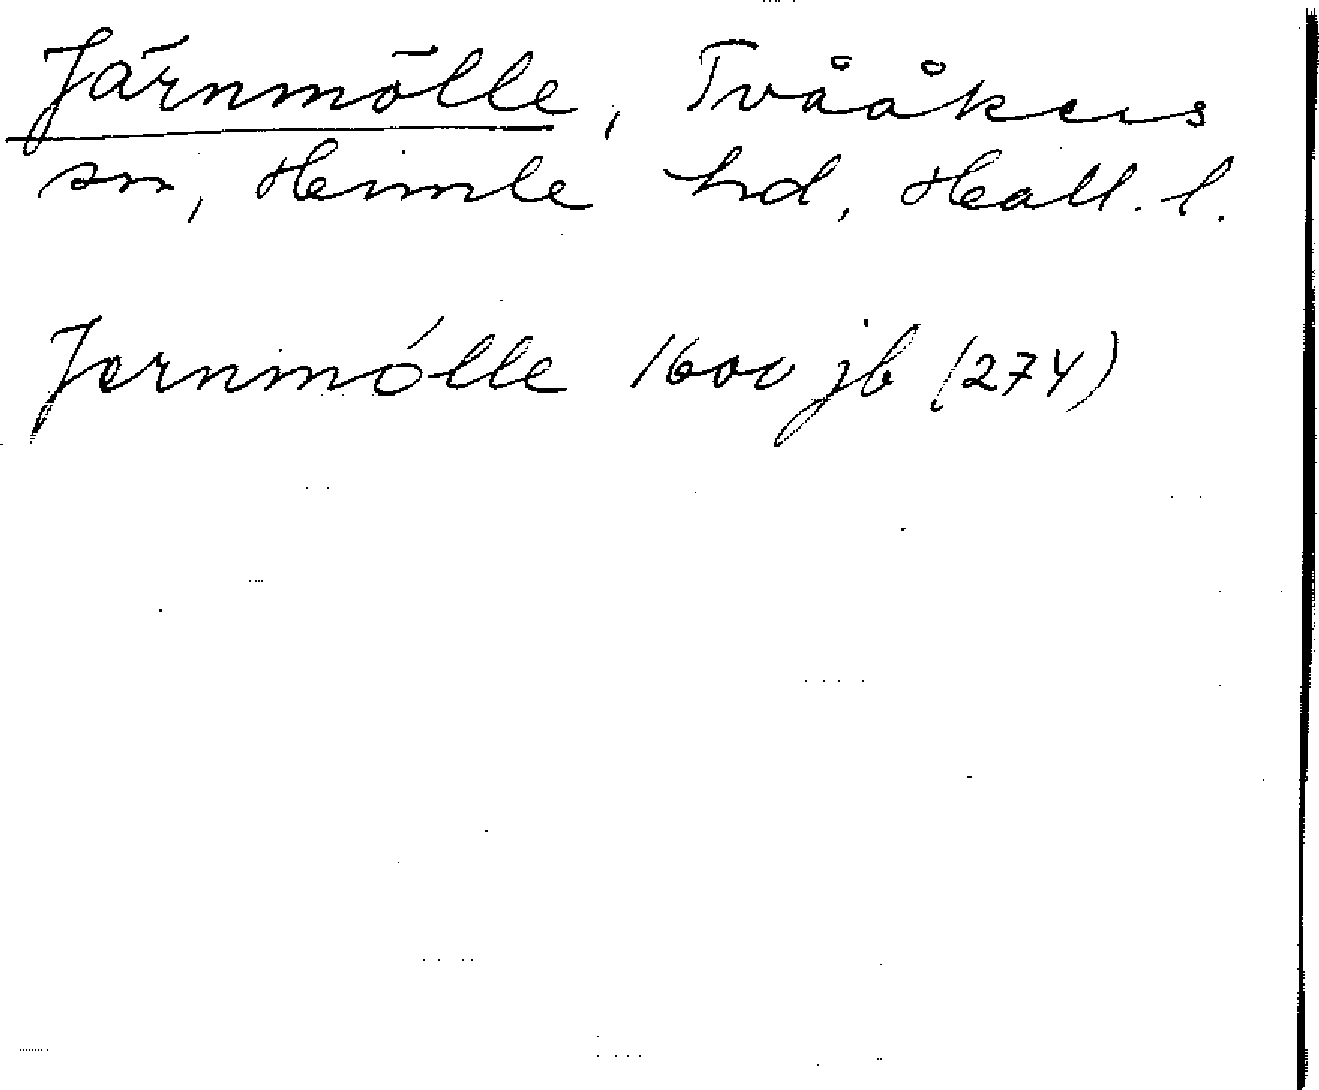 Järnmölle, Tvååkers
sn, Himle hd, Hall. l.
Jernmólle 1600 jb (274)